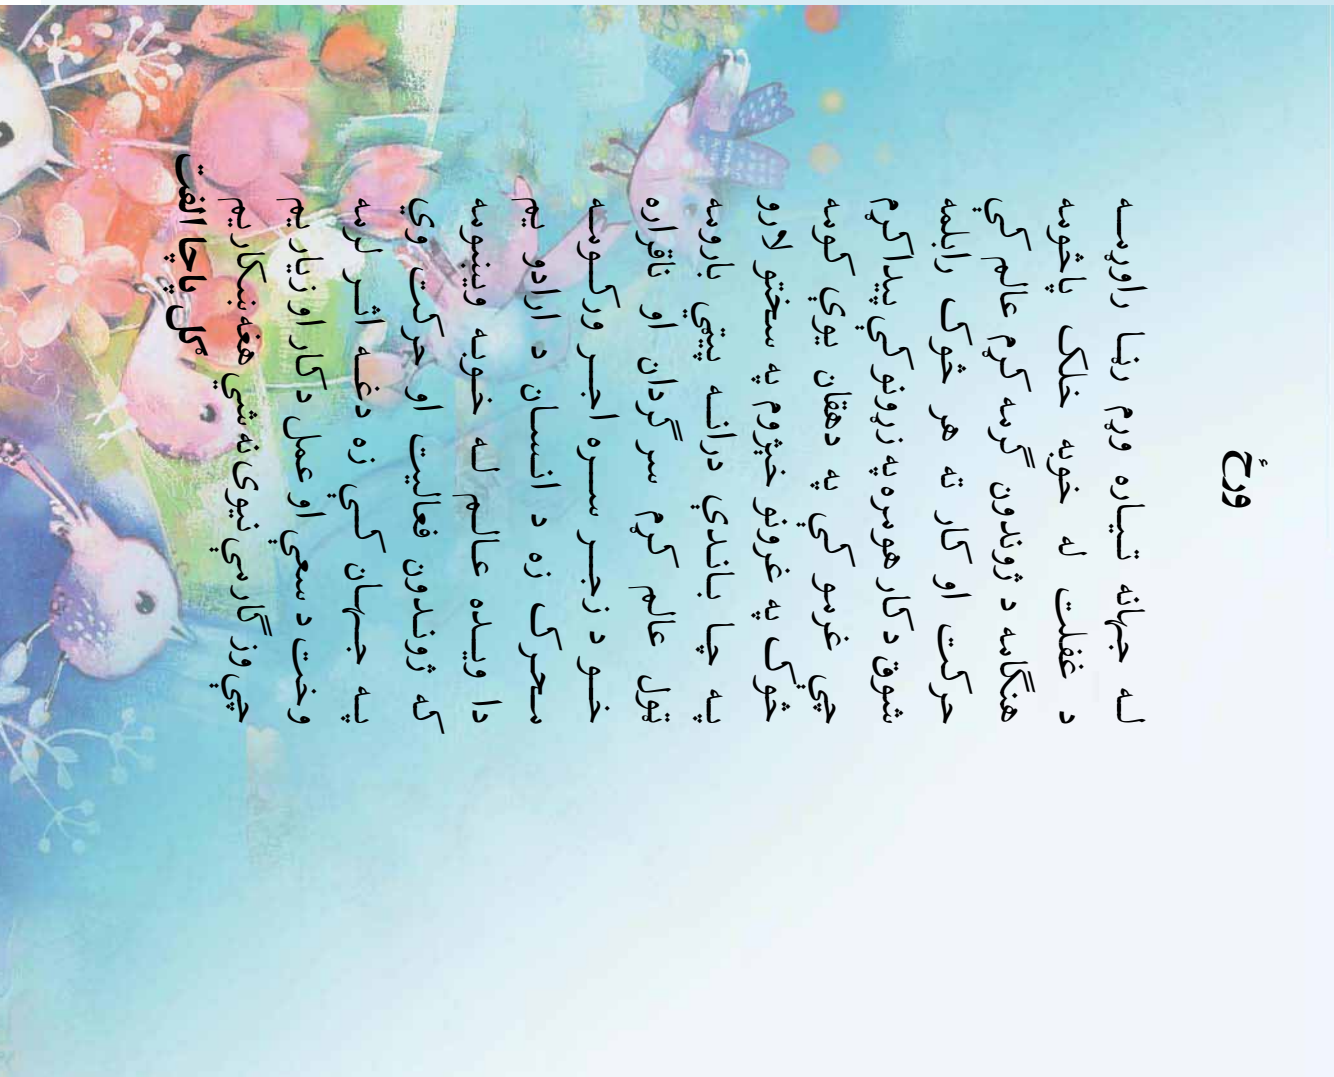 ورځ
له جهانه تياره وړم رڼا راوړمه
د غفلت له خوبه خلک پاڅومه
هنگامه د ژوندون گرمه کړم عالم کې
حرکت او کار ته هر څوک رابلمه
شوق د کار هومره په زړونو کې پيدا کړم
چې غرمو کې په دهقان يوې کومه
څوک په غرونو خېژوم په سختو لارو
په چا باندې درانه پېټي بارومه
ټول عالم کړم سر گردان او ناقراره
خو د زجر سره اجر ورکومه
محرک زه د انسان د ارادو يم
دا ويده عالم له خوبه ويښومه
که ژوندون فعاليت او حرکت وي
په جهان کې زه دغه اثر لرمه
وخت د سعې او عمل د کار او زيار يم
چې وزگار مې نيوی نه شي هغه ښکار يم
گل پاچا الفت